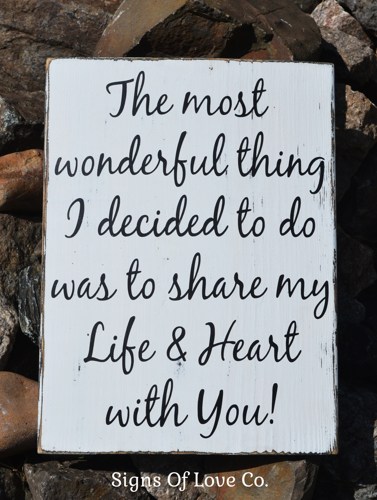 The most
wonderful thing
I decided to do
was to share my
Life & Heart
with You!
Signs Of Love Co.